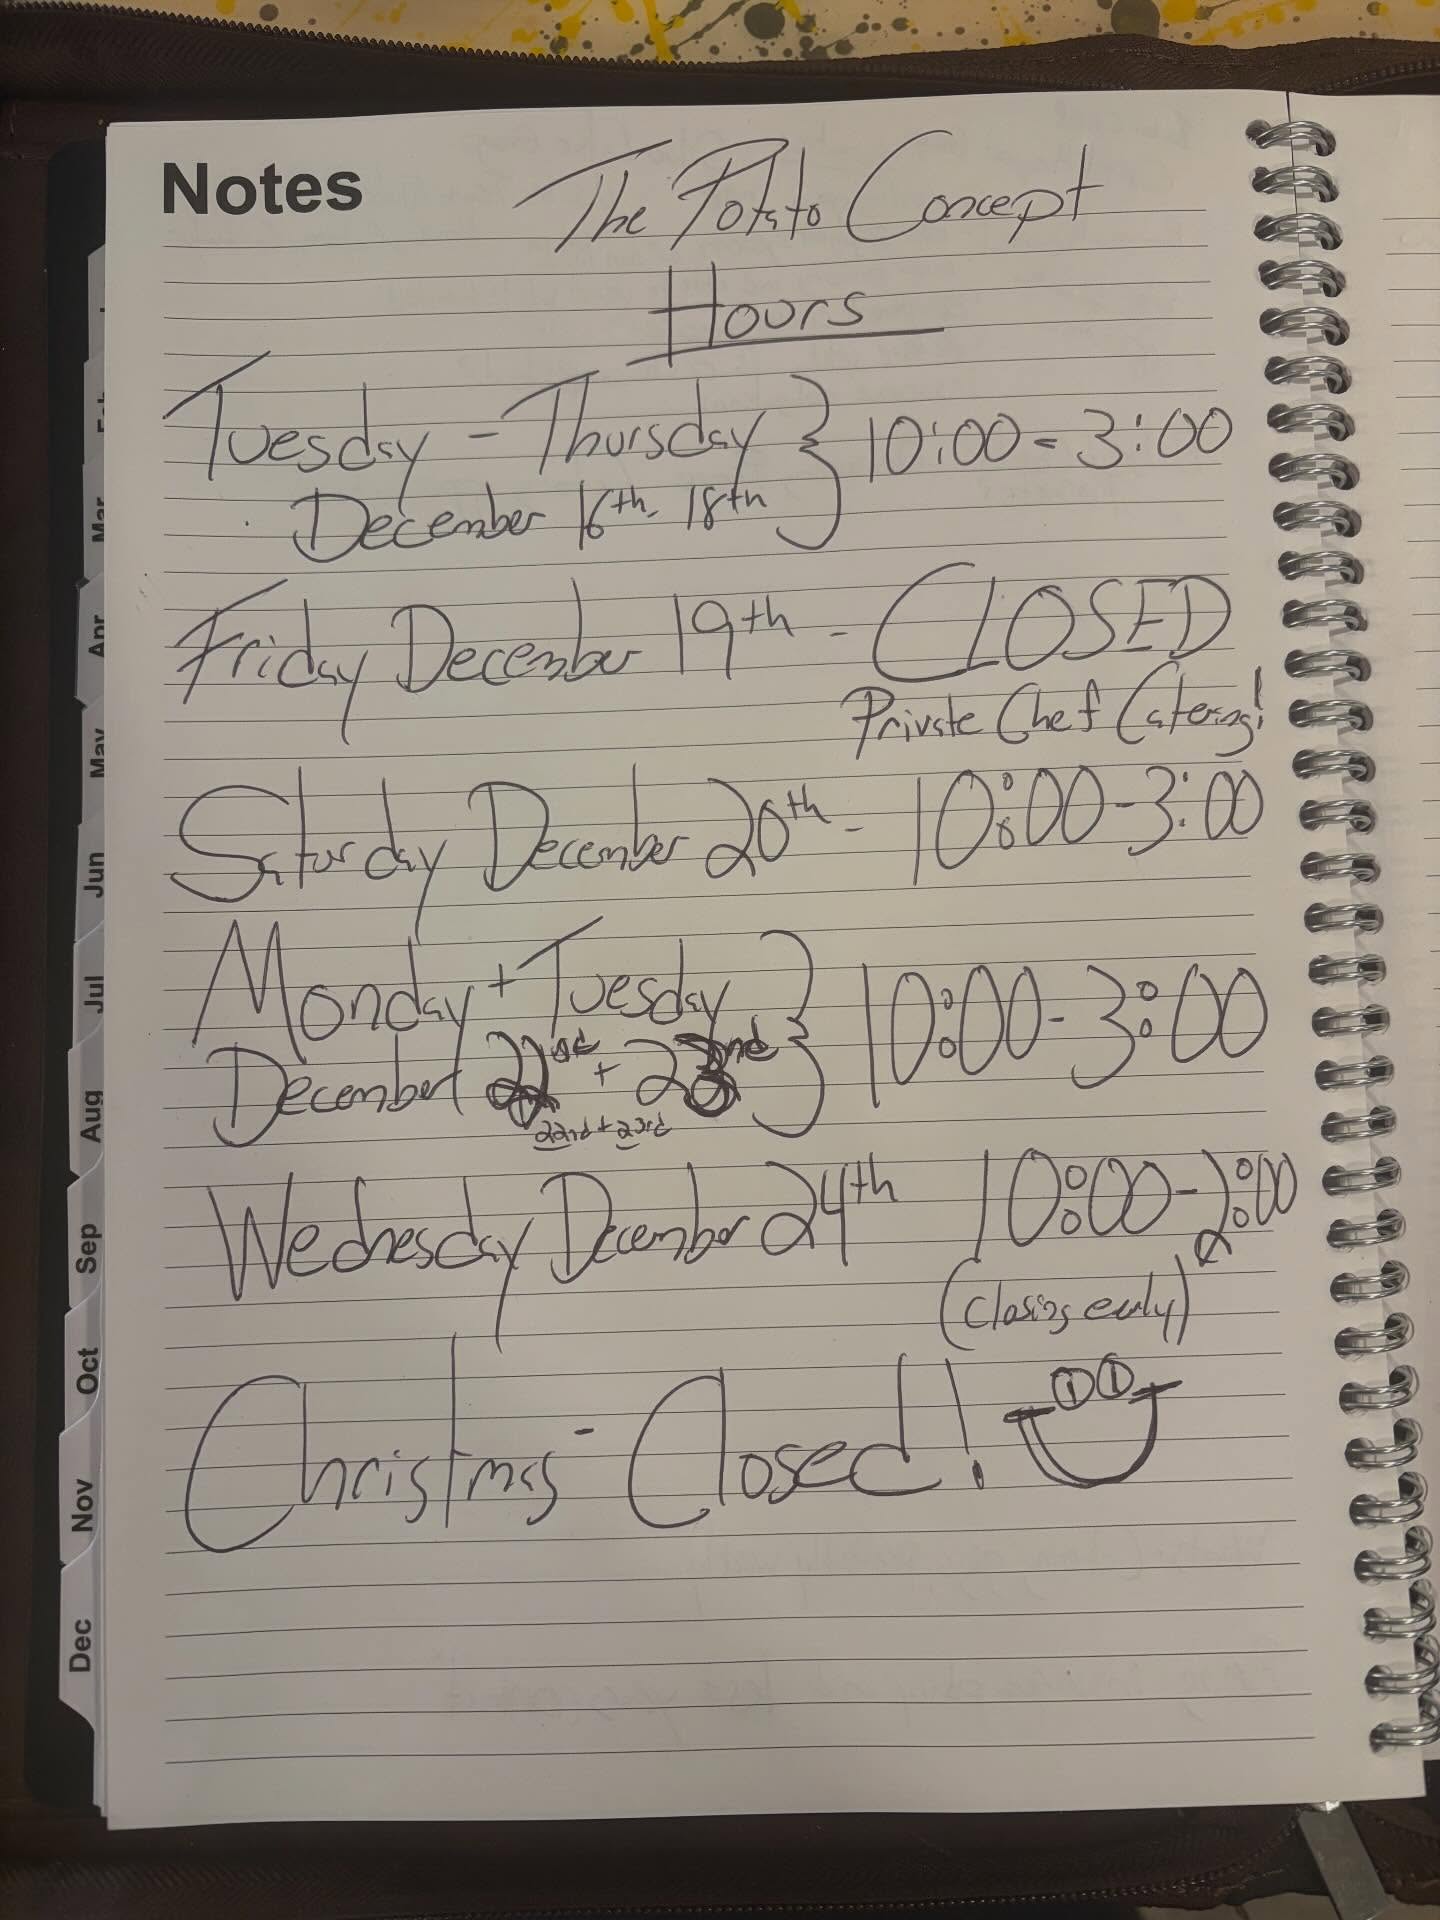 Notes
The Potato Concept
Hours
Tuesday - Thursday } 10:00 - 3:00
December 16th - 18th
Friday December 19th - CLOSED
Private Chef Catering!
Saturday December 20th - 10:00 - 3:00
Monday + Tuesday } 10:00 - 3:00
December 22nd + 23nd
22nd + 23rd
Wednesday December 24th 10:00 - 2:00
(Closing early)
Christmas - Closed!
Mar
Apr
May
Jun
Jul
Aug
Sep
Oct
Nov
Dec